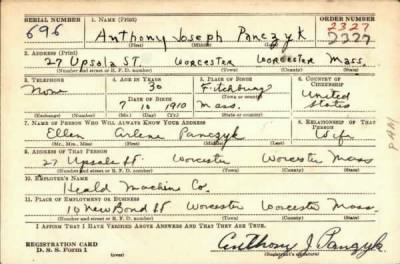 SERIAL NUMBER 1. NAME (Print) ORDER NUMBER
696 Anthony Joseph Panczyk 2327
(First) (Middle) (Last) 2327
2. ADDRESS (Print)
27 Upsola ST. Worcester Worcester Mass.
(Number and street or R. F. D. number) (Town) (County) (State)
3. TELEPHONE 4. AGE IN YEARS 5. PLACE OF BIRTH 6. COUNTRY OF CITIZENSHIP
None 30 Fitchburg United States
DATE OF BIRTH (Town or county)
7 10 1910 Mass.
(Exchange) (Number) (Mo.) (Day) (Yr.) (State or country)
7. NAME OF PERSON WHO WILL ALWAYS KNOW YOUR ADDRESS 8. RELATIONSHIP OF THAT PERSON
Ellen Arlene Panczyk Wife
(Mr., Mrs., Miss) (First) (Middle) (Last)
9. ADDRESS OF THAT PERSON
27 Upsala St. Worcester Worcester Mass
(Number and street or R. F. D. number) (Town) (County) (State)
10. EMPLOYER'S NAME
Heald Machine Co.
11. PLACE OF EMPLOYMENT OR BUSINESS
10 New Bond St Worcester Worcester Mass.
(Number and street or R. F. D. number) (Town) (County) (State)
I AFFIRM THAT I HAVE VERIFIED ABOVE ANSWERS AND THAT THEY ARE TRUE.
REGISTRATION CARD
D. S. S. Form 1 Anthony J. Panczyk
(Registrant's signature)